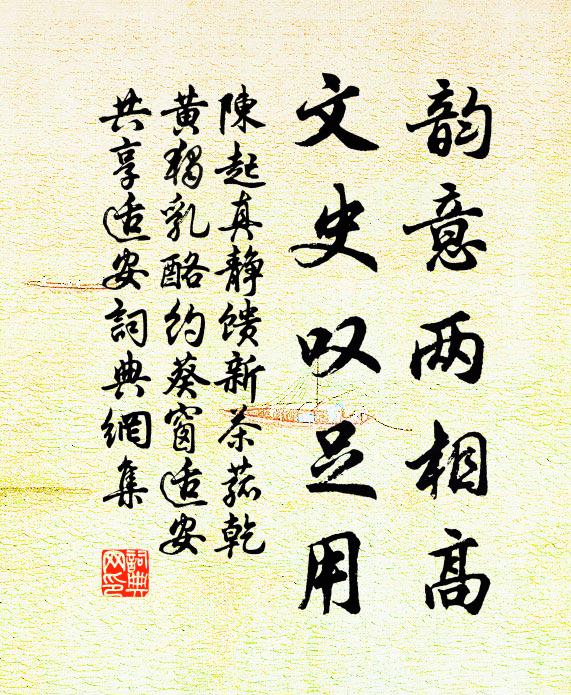 韵意两相高
文史叹足用
陳起真静馈新茶菰乾
黄獨乳酪约葵窗适安
共享适安詞典網集
詞典网印